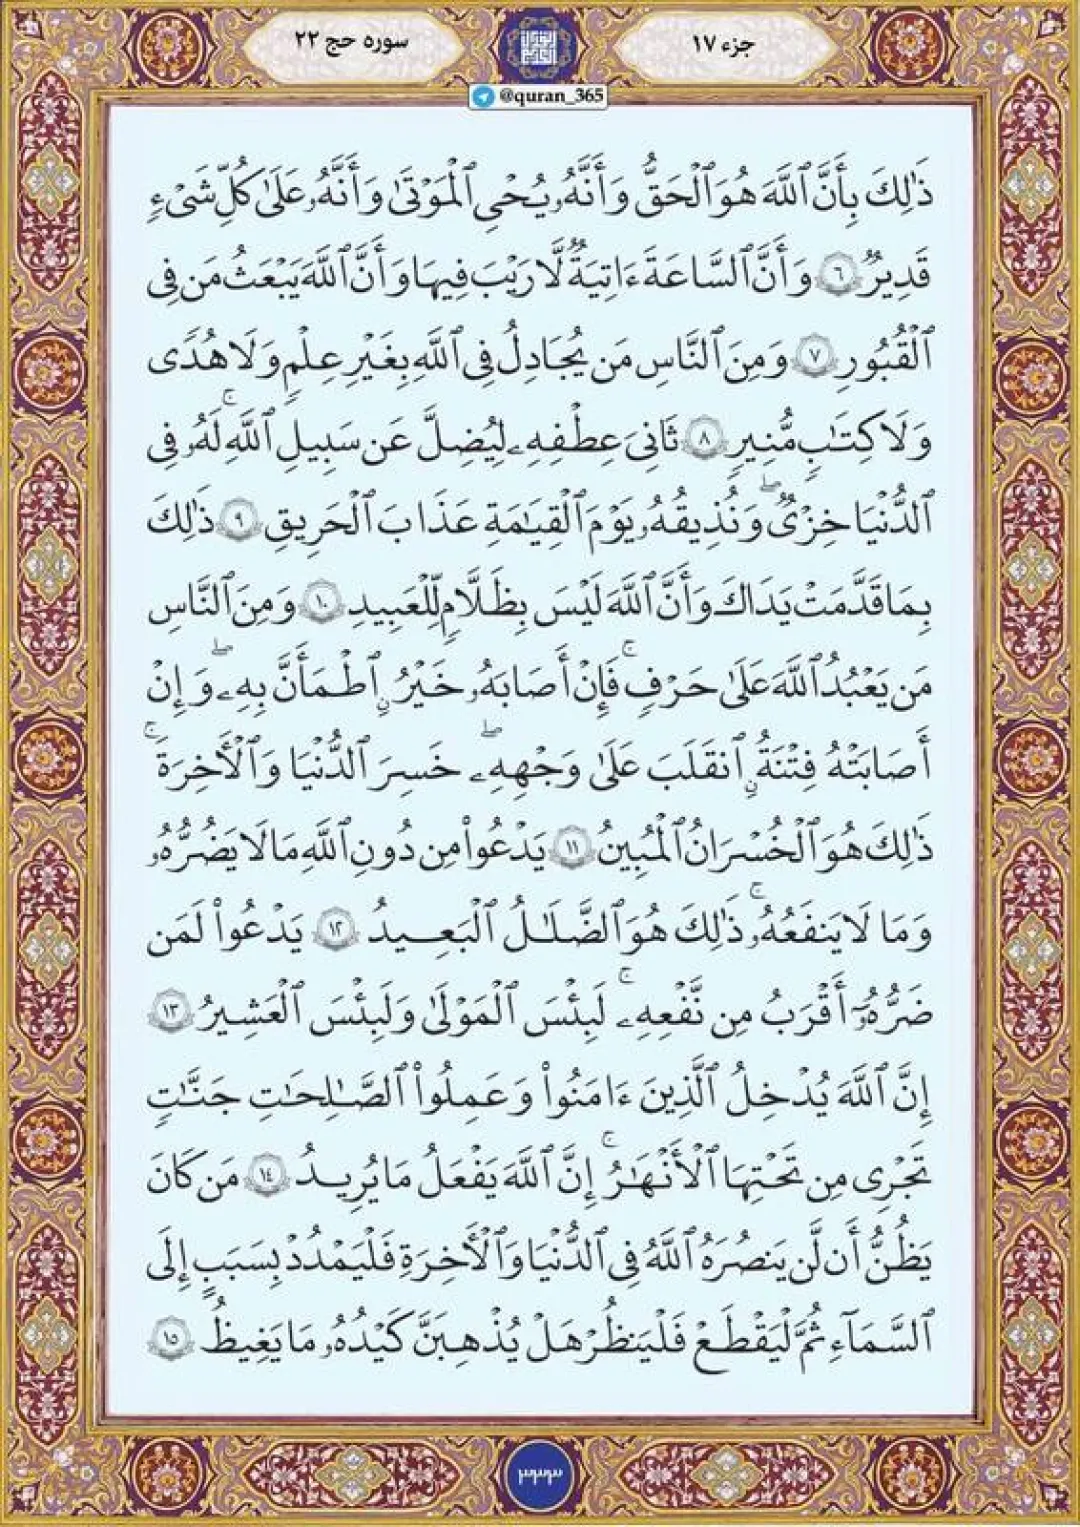 جزء ۱۷
سوره حج ۲۲
@quran_365
ذَٰلِكَ بِأَنَّ ٱللَّهَ هُوَ ٱلْحَقُّ وَأَنَّهُۥ يُحْىِ ٱلْمَوْتَىٰ وَأَنَّهُۥ عَلَىٰ كُلِّ شَىْءٍ
قَدِيرٌ ٦ وَأَنَّ ٱلسَّاعَةَ ءَاتِيَةٌ لَّا رَيْبَ فِيهَا وَأَنَّ ٱللَّهَ يَبْعَثُ مَن فِى
ٱلْقُبُورِ ٧ وَمِنَ ٱلنَّاسِ مَن يُجَادِلُ فِى ٱللَّهِ بِغَيْرِ عِلْمٍ وَلَا هُدًى
وَلَا كِتَٰبٍ مُّنِيرٍ ٨ ثَانِىَ عِطْفِهِۦ لِيُضِلَّ عَن سَبِيلِ ٱللَّهِ ۚ لَهُۥ فِى
ٱلدُّنْيَا خِزْىٌ ۖ وَنُذِيقُهُۥ يَوْمَ ٱلْقِيَٰمَةِ عَذَابَ ٱلْحَرِيقِ ٩ ذَٰلِكَ
بِمَا قَدَّمَتْ يَدَاكَ وَأَنَّ ٱللَّهَ لَيْسَ بِظَلَّٰمٍ لِّلْعَبِيدِ ١٠ وَمِنَ ٱلنَّاسِ
مَن يَعْبُدُ ٱللَّهَ عَلَىٰ حَرْفٍ ۚ فَإِنْ أَصَابَهُۥ خَيْرٌ ٱطْمَأَنَّ بِهِۦ ۖ وَإِنْ
أَصَابَتْهُ فِتْنَةٌ ٱنقَلَبَ عَلَىٰ وَجْهِهِۦ ۖ خَسِرَ ٱلدُّنْيَا وَٱلْأَخِرَةَ ۚ
ذَٰلِكَ هُوَ ٱلْخُسْرَانُ ٱلْمُبِينُ ١١ يَدْعُوا۟ مِن دُونِ ٱللَّهِ مَا لَا يَضُرُّهُۥ
وَمَا لَا يَنفَعُهُۥ ۚ ذَٰلِكَ هُوَ ٱلضَّلَٰلُ ٱلْبَعِيدُ ١٢ يَدْعُوا۟ لَمَن
ضَرُّهُۥٓ أَقْرَبُ مِن نَّفْعِهِۦ ۚ لَبِئْسَ ٱلْمَوْلَىٰ وَلَبِئْسَ ٱلْعَشِيرُ ١٣
إِنَّ ٱللَّهَ يُدْخِلُ ٱلَّذِينَ ءَامَنُوا۟ وَعَمِلُوا۟ ٱلصَّٰلِحَٰتِ جَنَّٰتٍ
تَجْرِى مِن تَحْتِهَا ٱلْأَنْهَٰرُ ۚ إِنَّ ٱللَّهَ يَفْعَلُ مَا يُرِيدُ ١٤ مَن كَانَ
يَظُنُّ أَن لَّن يَنصُرَهُ ٱللَّهُ فِى ٱلدُّنْيَا وَٱلْأَخِرَةِ فَلْيَمْدُدْ بِسَبَبٍ إِلَى
ٱلسَّمَآءِ ثُمَّ لْيَقْطَعْ فَلْيَنظُرْ هَلْ يُذْهِبَنَّ كَيْدُهُۥ مَا يَغِيظُ ١٥
۳۳۳